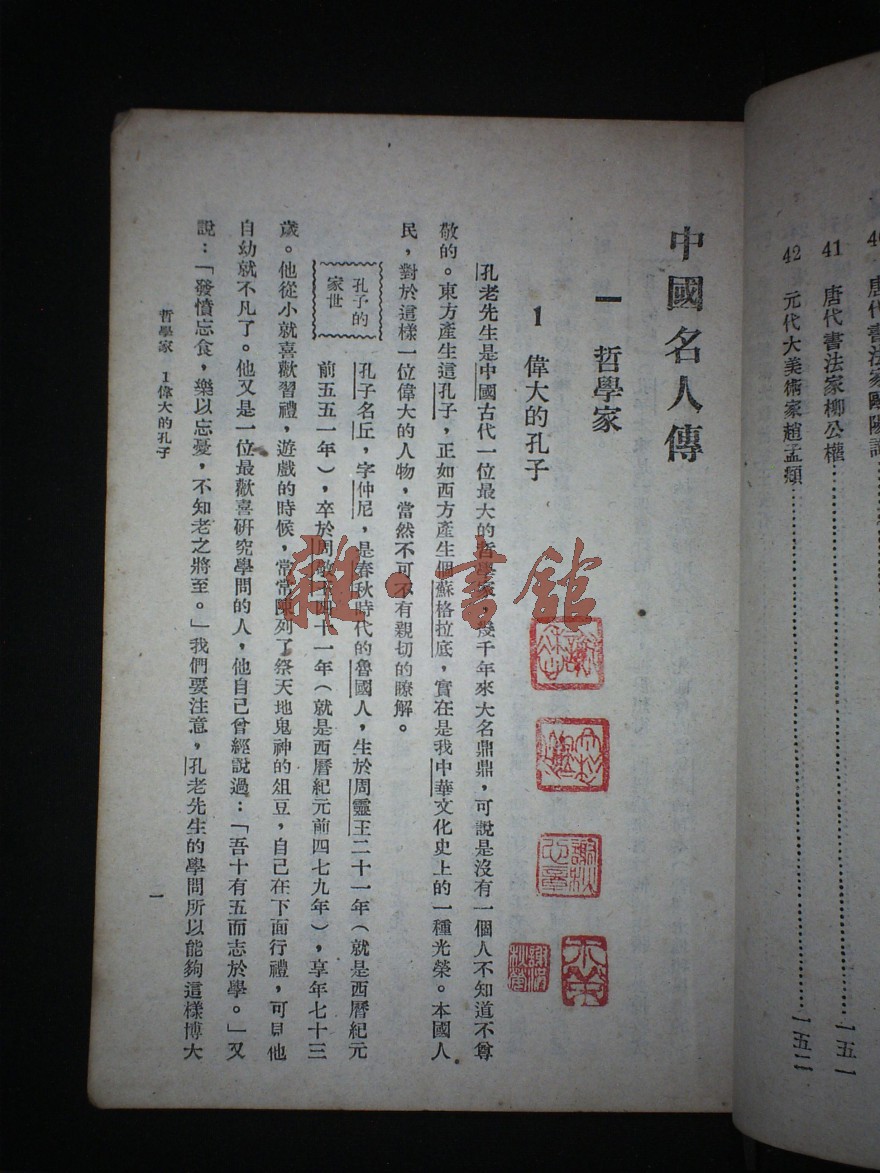 40 唐代書法家歐陽詢
41 唐代書法家柳公權……一五一
42 元代大美術家趙孟頫……一五二
中國名人傳
一 哲學家
1 偉大的孔子
孔老先生是中國古代一位最大的哲學家，幾千年來大名鼎鼎，可說是沒有一個人不知道不尊
敬的。東方產生這孔子，正如西方產生個蘇格拉底，實在是我中華文化史上的一種光榮。本國人
民，對於這樣一位偉大的人物，當然不可不有親切的瞭解。
孔子的
家世
孔子名丘，字仲尼，是春秋時代的魯國人，生於周靈王二十一年（就是西曆紀元
前五五一年），卒於周敬王四十一年（就是西曆紀元前四七九年），享年七十三
歲。他從小就喜歡習禮，遊戲的時候，常常陳列了祭天地鬼神的俎豆，自己在下面行禮，可見他
自幼就不凡了。他又是一位最歡喜研究學問的人，他自己曾經說過：「吾十有五而志於學。」又
說：「發憤忘食，樂以忘憂，不知老之將至。」我們要注意，孔老先生的學問所以能夠這樣博大
哲學家 1 偉大的孔子
一
雜·書館